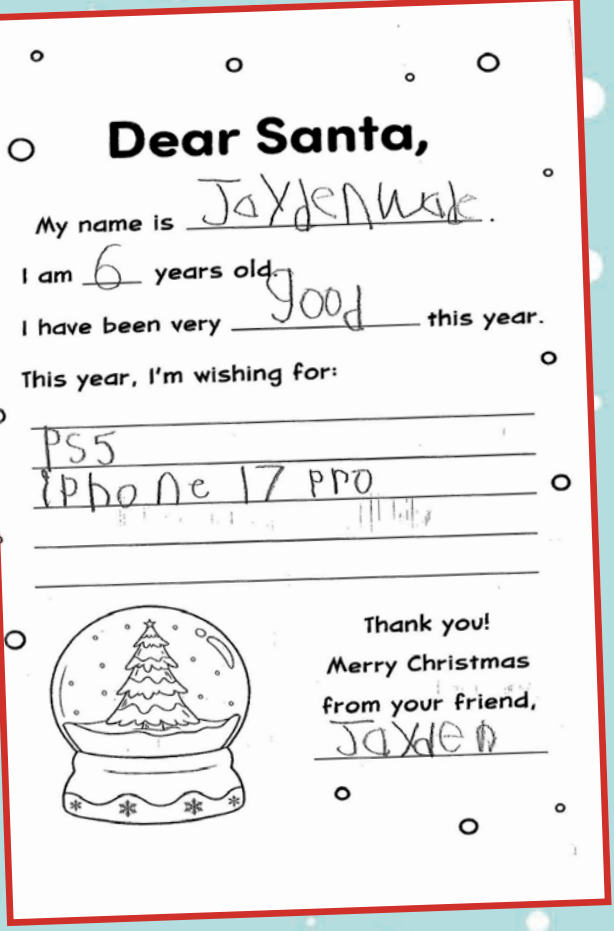 Dear Santa,
My name is Jayden Wade.
I am 6 years old.
I have been very good this year.
This year, I'm wishing for:
PS5
iphone 17 pro
Thank you!
Merry Christmas
from your friend,
Jayden